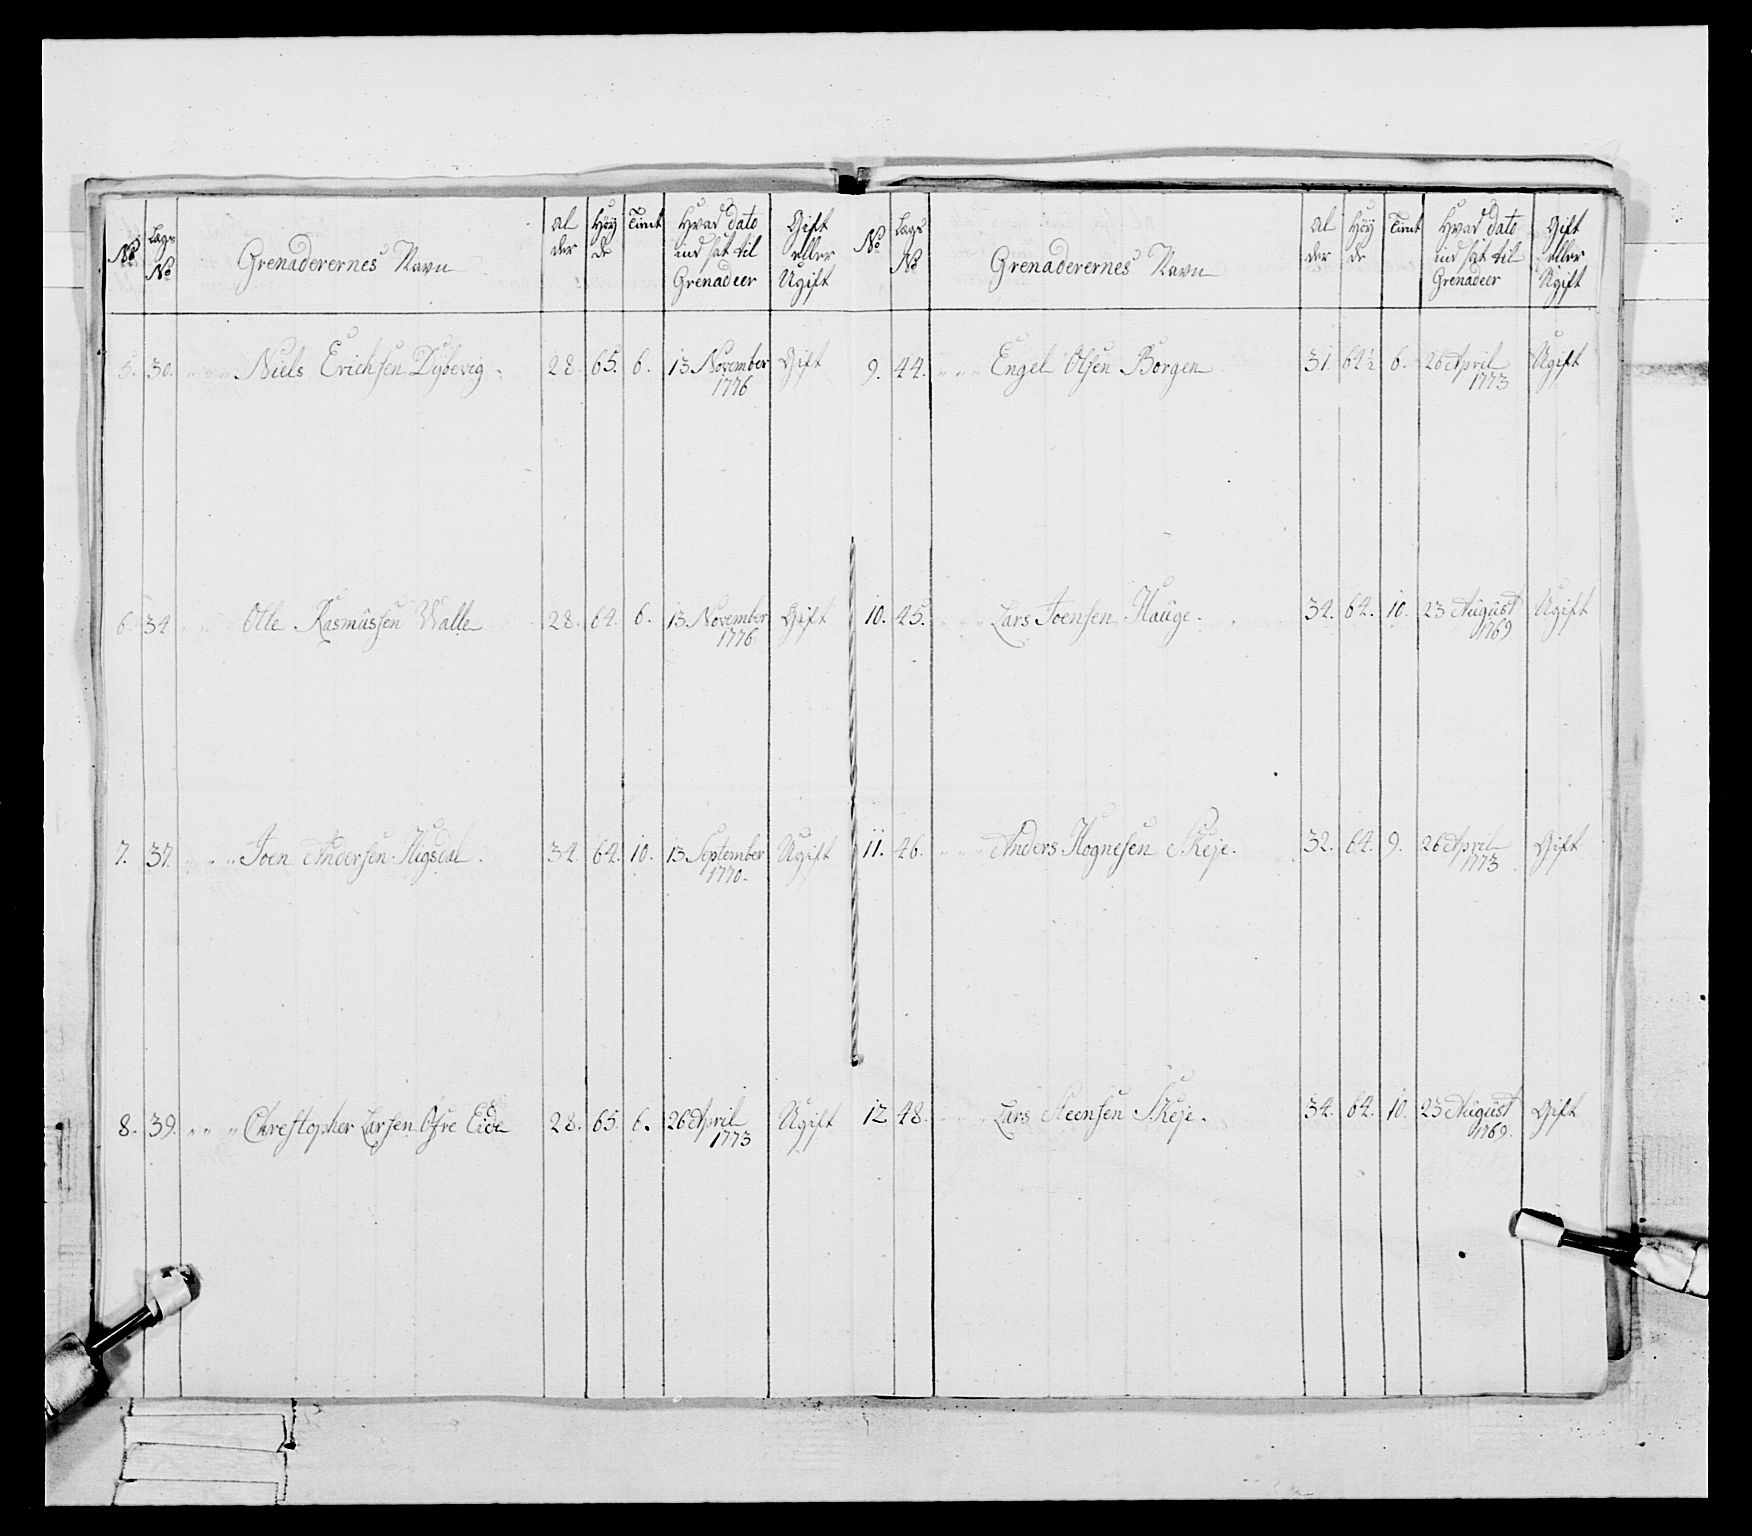 No Lags No Grenaderernes Navn Al der Høy de Tient Hvad dato ind sat til Grenadeer Gift eller Ugift
5. 30. " " " Niels Erichsen Dybevig 28. 65. 6. 13 November 1776 Gift
6. 34 " " " Olle Rasmussen Walle 28. 64. 6. 13 November 1776 Gift
7. 37. " " " Joen Andersen Higsdal. 34. 64. 10. 13 September 1770. Ugift
8. 39. " " " Christopher Larsen Øfre Eide 28. 65. 6. 26 April 1773 Ugift
No Lags No Grenaderernes Navn Al der Høy de Tient Hvad dato ind sat til Grenadeer Gift eller Ugift
9. 44. " " " Engel Olsen Borgen 31. 64½ 6. 26 April 1773 Ugift
10. 45. " " " Lars Joensen Hauge. 34. 64. 10. 23 August 1769 Ugift
11. 46. " " " Anders Hognesen Skeje. 32. 64. 9. 26 April 1773 Gift
12 48. " " " Lars Steensen Skeje. 34. 64. 10. 23 August 1769. Gift